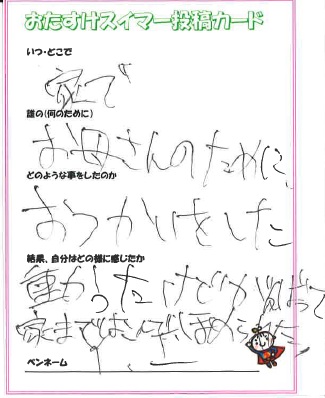 おたすけスイマー投稿カード
いつ・どこで
家で
誰の(何のために)
お母さんのために
どのような事をしたのか
おつかいをした
結果、自分はどの様に感じたか
重かったけどがんばって
家まではこんだらほめられた
ペンネーム